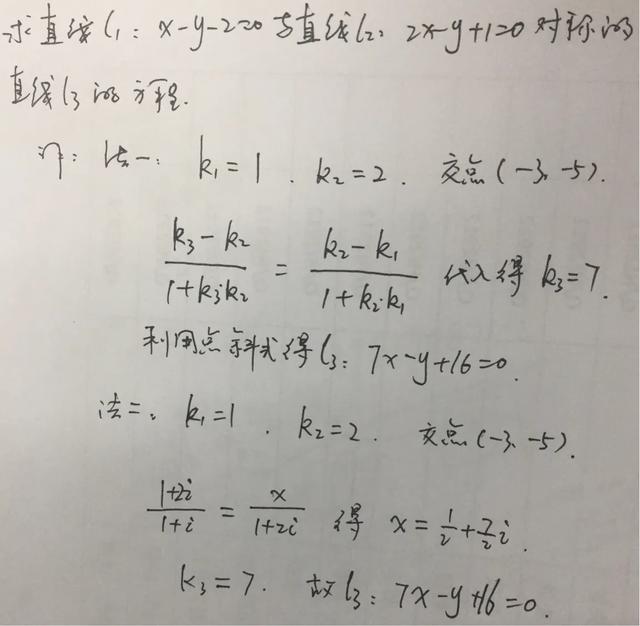 求直线l₁: x-y-2=0与直线l₂: 2x-y+1=0对称的
直线l₃的方程.
解: 法一: k₁=1. k₂=2. 交点(-3,-5).
(k₃-k₂)/(1+k₃k₂) = (k₂-k₁)/(1+k₂·k₁) 代入得 k₃=7.
利用点斜式得l₃: 7x-y+16=0.
法二. k₁=1. k₂=2. 交点(-3,-5).
(1+2i)/(1+i) = x/(1+2i) 得 x=1/2+7/2i.
k₃=7. 故l₃: 7x-y+16=0.